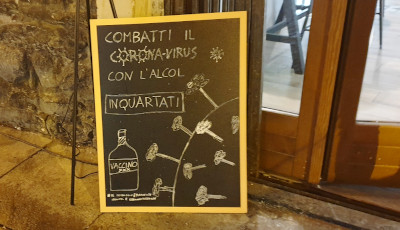 COMBATTI IL
CORONA-VIRUS
CON L'ALCOL
INQUARTATI
VACCINO